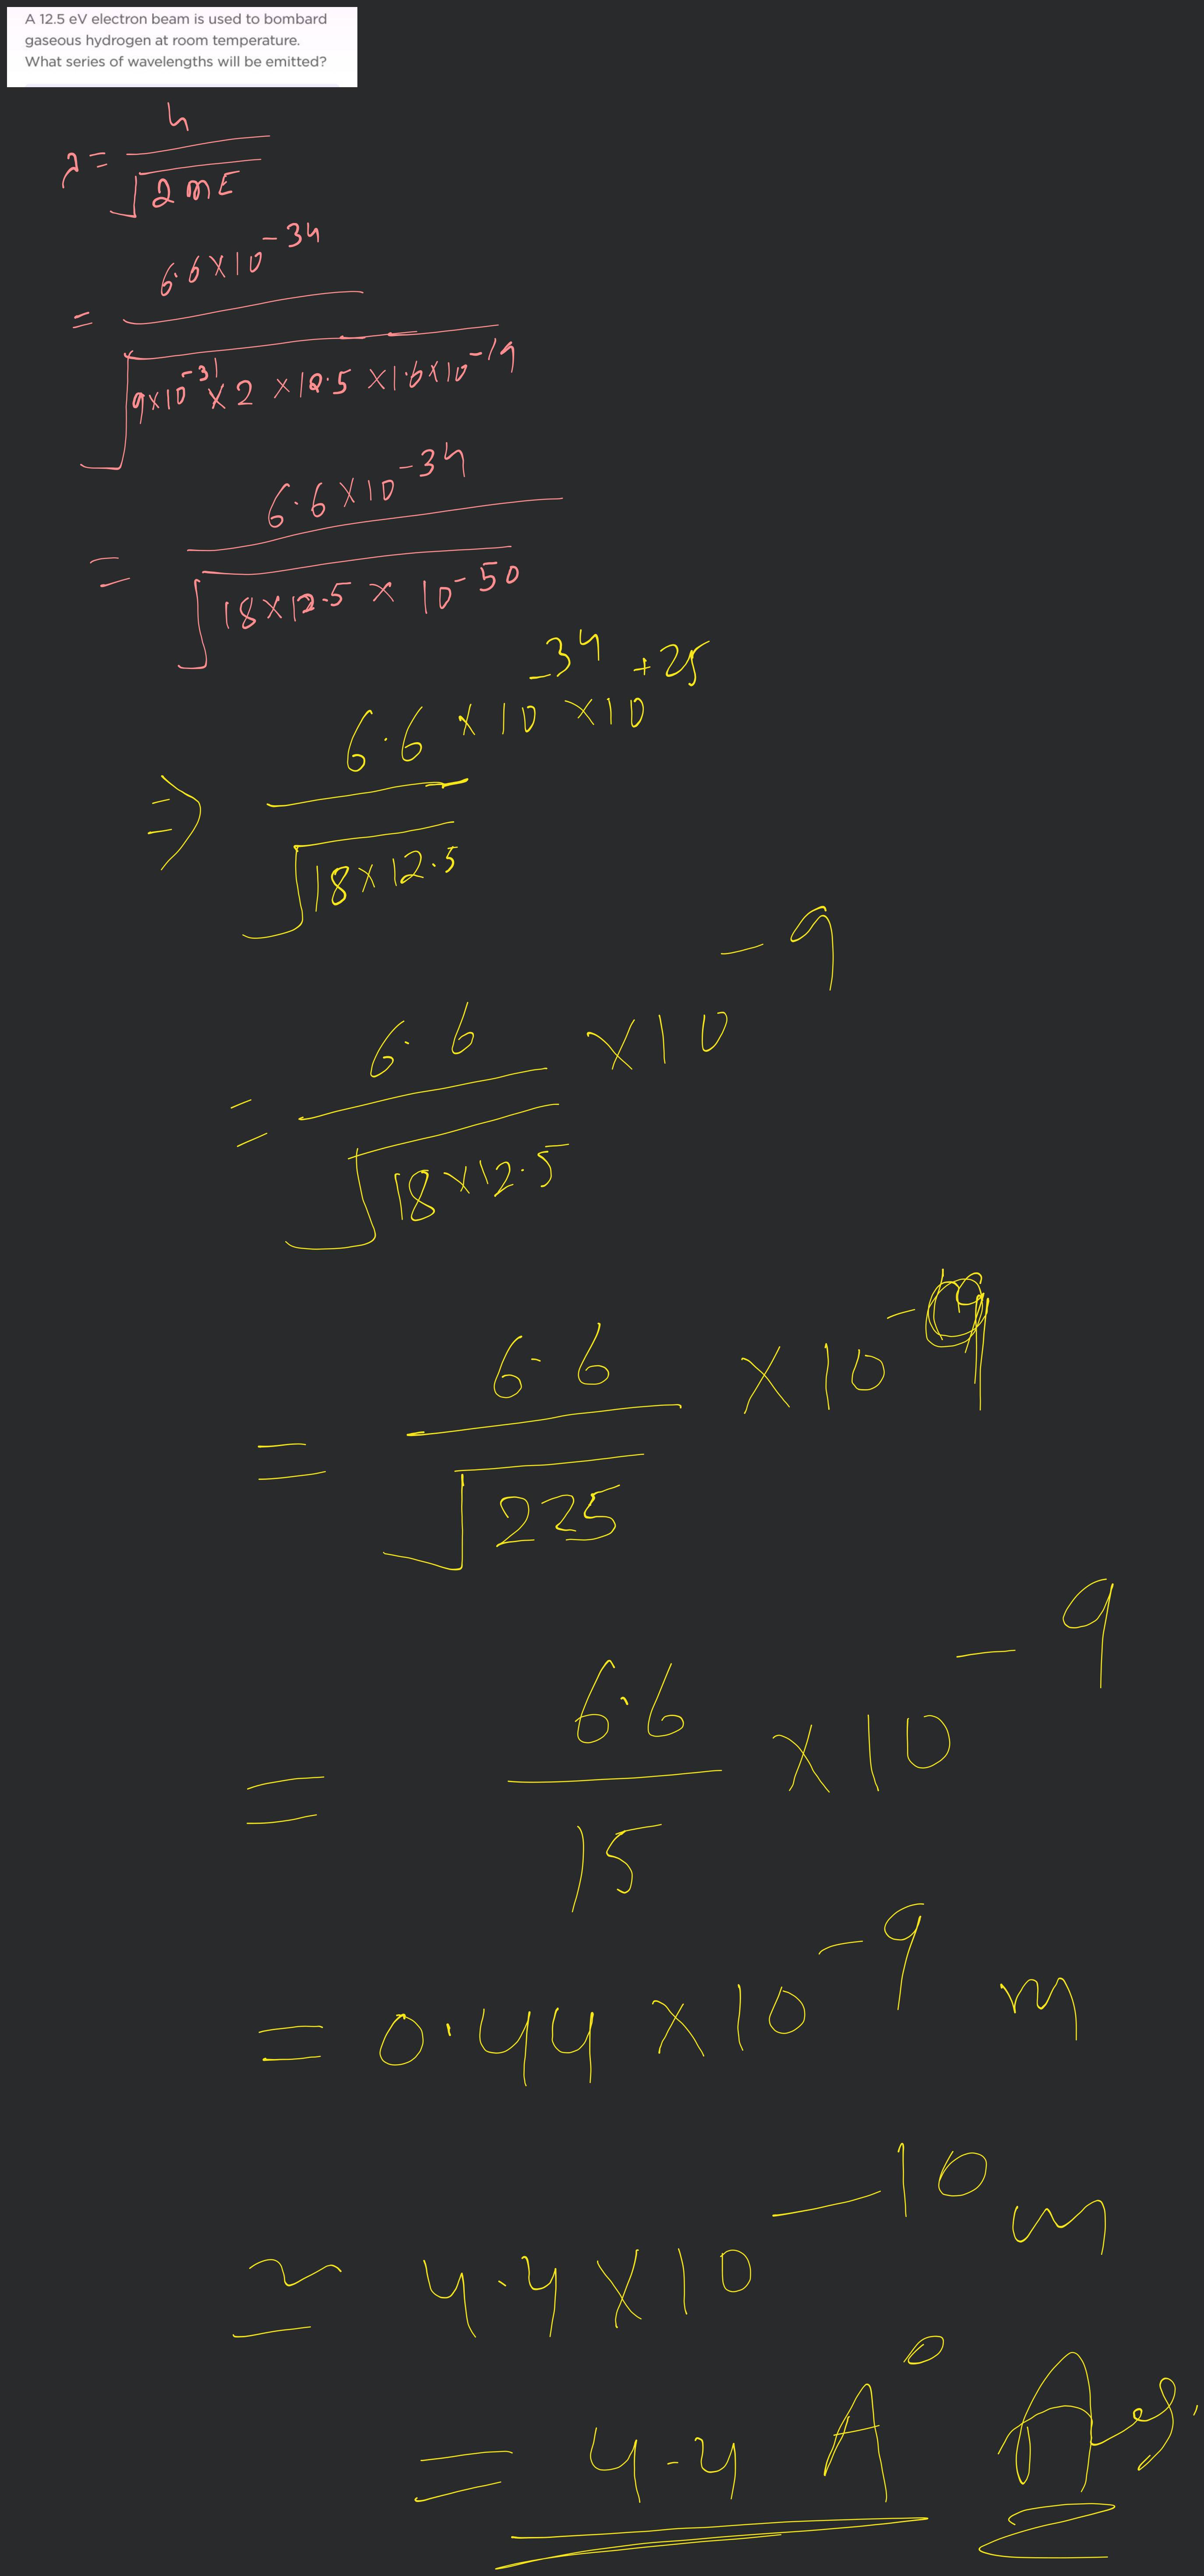 A 12.5 eV electron beam is used to bombard
gaseous hydrogen at room temperature.
What series of wavelengths will be emitted?
λ = h / √(2mE)
= 6.6×10^-34 / √(9×10^-31 ×2 ×12.5 ×1.6×10^-19)
= 6.6×10^-34 / √(18×12.5 × 10^-50)
⇒ 6.6 ×10^-34 ×10^+25 / √(18×12.5)
= 6.6 / √(18×12.5) ×10^-9
= 6.6 / √225 ×10^-9
= 6.6 / 15 ×10^-9
= 0.44 ×10^-9 m
≃ 4.4×10^-10 m
= 4.4 A° Ans.